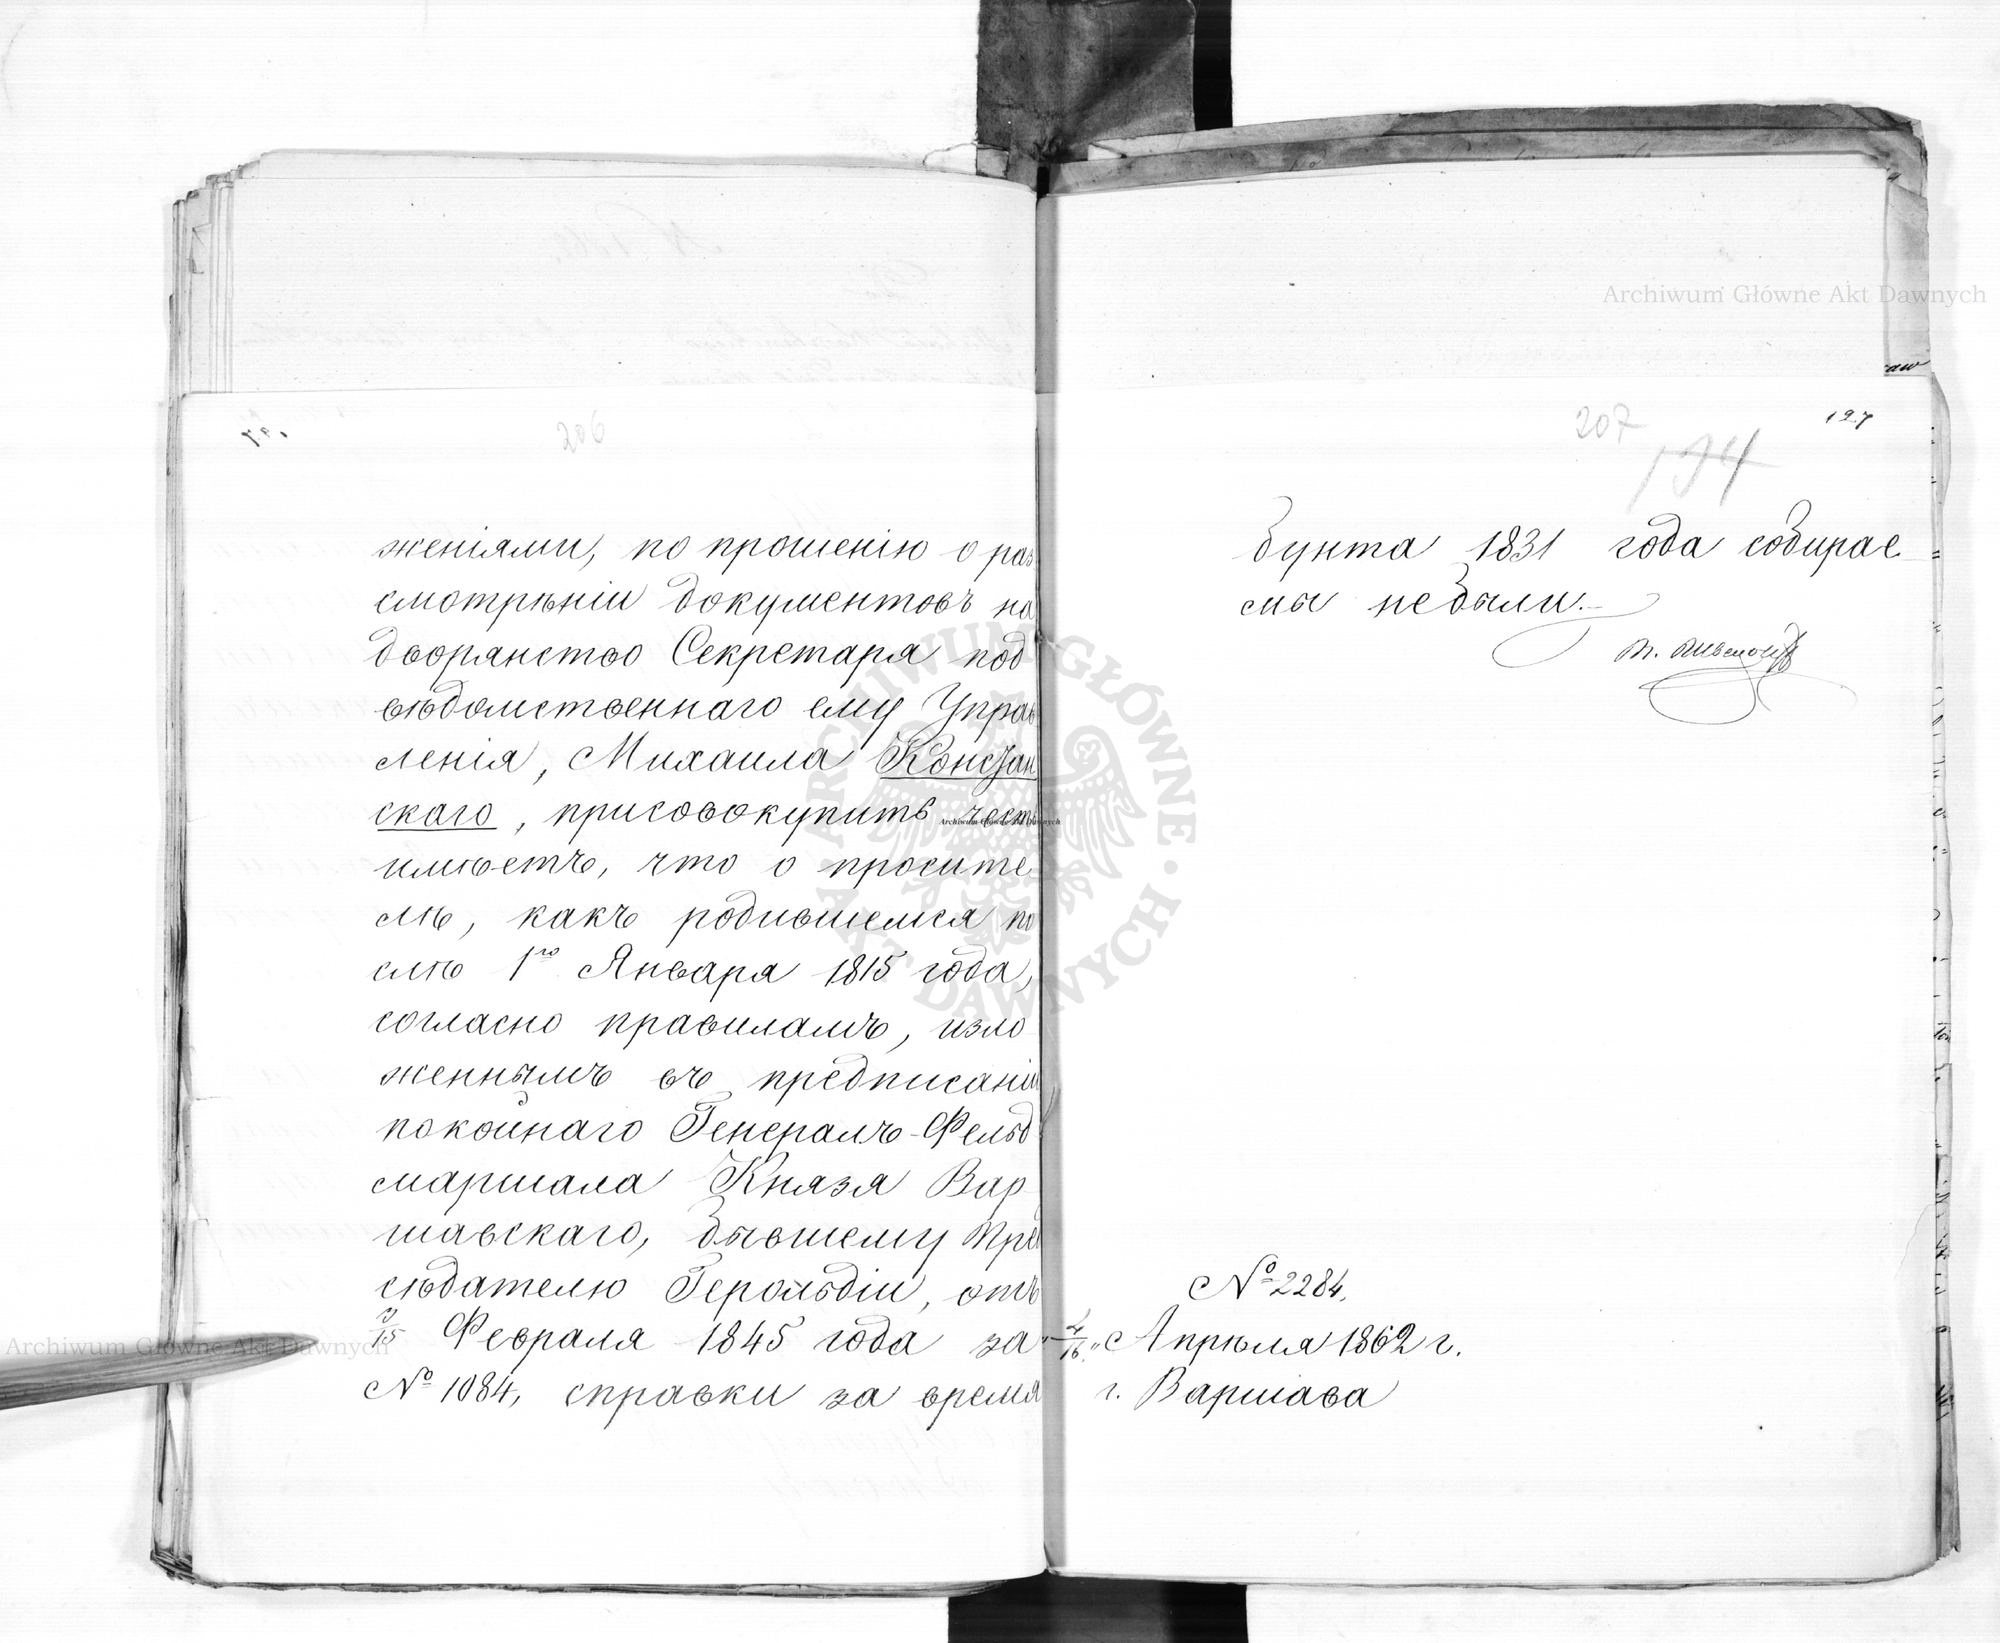 206
женіями, по прошенію о раз
смотрѣніи документовъ на
дворянство Секретаря под
вѣдомственнаго ему Управ
ленія, Михаила КонсTан
скаго, присовокупить честь
имѣетъ, что о просите
лѣ, какъ родившемся по
слѣ 1го Января 1815 года,
согласно правиламъ, изло
женнымъ въ предписаніи
покойнаго Генералъ-Фельд
маршала Князя Вар
шавскаго, бывшему Пре
сѣдателю Герольдіи, отъ
3/15 Февраля 1845 года за
№ 1084, справки за время
207
127
194
бунта 1831 года собирае
мы не были.
№ 2284.
"4/16" Апрѣля 1862 г.
г. Варшава
Archiwum Główne Akt Dawnych
Archiwum Główne Akt Dawnych
Archiwum Główne Akt Dawnych
ARCHIWUM GŁÓWNE AKT DAWNYCH